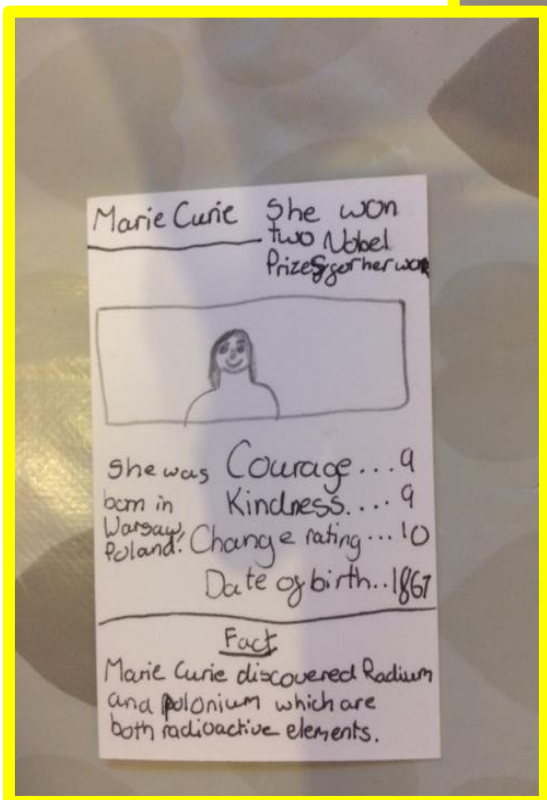 Marie Curie
She won
two Nobel
Prizes for her work
She was
born in
Warsaw,
Poland.
Courage...9
Kindness....9
Change rating...10
Date of birth..1867
Fact
Marie Curie discovered Radium
and polonium which are
both radioactive elements.